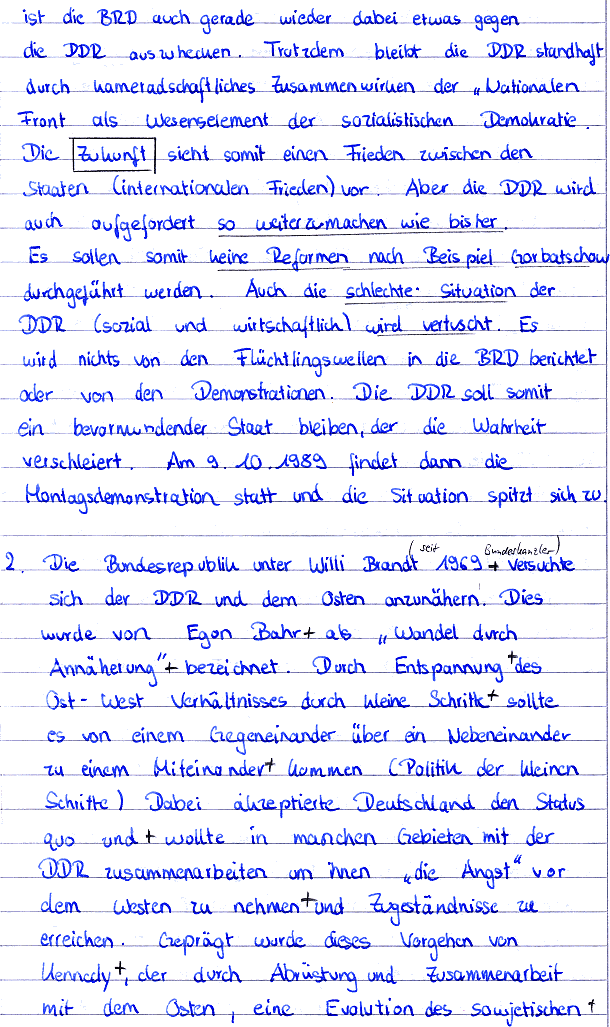 ist die BRD auch gerade wieder dabei etwas gegen
die DDR auszuhecken. Trotzdem bleibt die DDR standhaft
durch kameradschaftliches Zusammenwirken der „Nationalen
Front als Wesenselement der sozialistischen Demokratie.
Die Zukunft sieht somit einen Frieden zwischen den
Staaten (internationalen Frieden) vor. Aber die DDR wird
auch aufgefordert so weiterzumachen wie bisher.
Es sollen somit keine Reformen nach Beispiel Gorbatschow
durchgeführt werden. Auch die schlechte Situation der
DDR (sozial und wirtschaftlich) wird vertuscht. Es
wird nichts von den Flüchtlingswellen in die BRD berichtet
oder von den Demonstrationen. Die DDR soll somit
ein bevormundender Staat bleiben, der die Wahrheit
verschleiert. Am 9.10.1989 findet dann die
Montagsdemonstration statt und die Situation spitzt sich zu.
(seit Bundeskanzler)
2. Die Bundesrepublik unter Willi Brandt 1969 + versuchte
sich der DDR und dem Osten anzunähern. Dies
wurde von Egon Bahr + als „Wandel durch
Annäherung" + bezeichnet. Durch Entspannung + des
Ost-West Verhältnisses durch kleine Schritte + sollte
es von einem Gegeneinander über ein Nebeneinander
zu einem Miteinander + kommen (Politik der kleinen
Schritte) Dabei akzeptierte Deutschland den Status
quo und + wollte in manchen Gebieten mit der
DDR zusammenarbeiten um ihnen „die Angst" vor
dem Westen zu nehmen + und Zugeständnisse zu
erreichen. Geprägt wurde dieses Vorgehen von
Kennedy +, der durch Abrüstung und Zusammenarbeit
mit dem Osten, eine Evolution des sowjetischen +